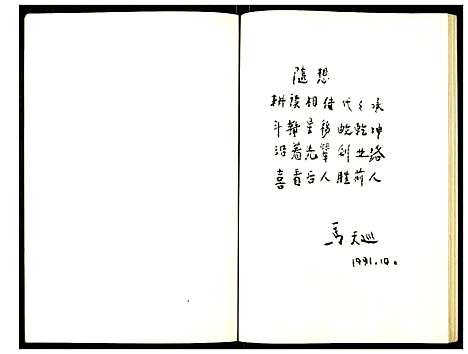 隨想
耕读相传代代承
斗轉星移乾坤
沿着先辈创业路
喜看后人胜前人
馬天巡
1991.10.